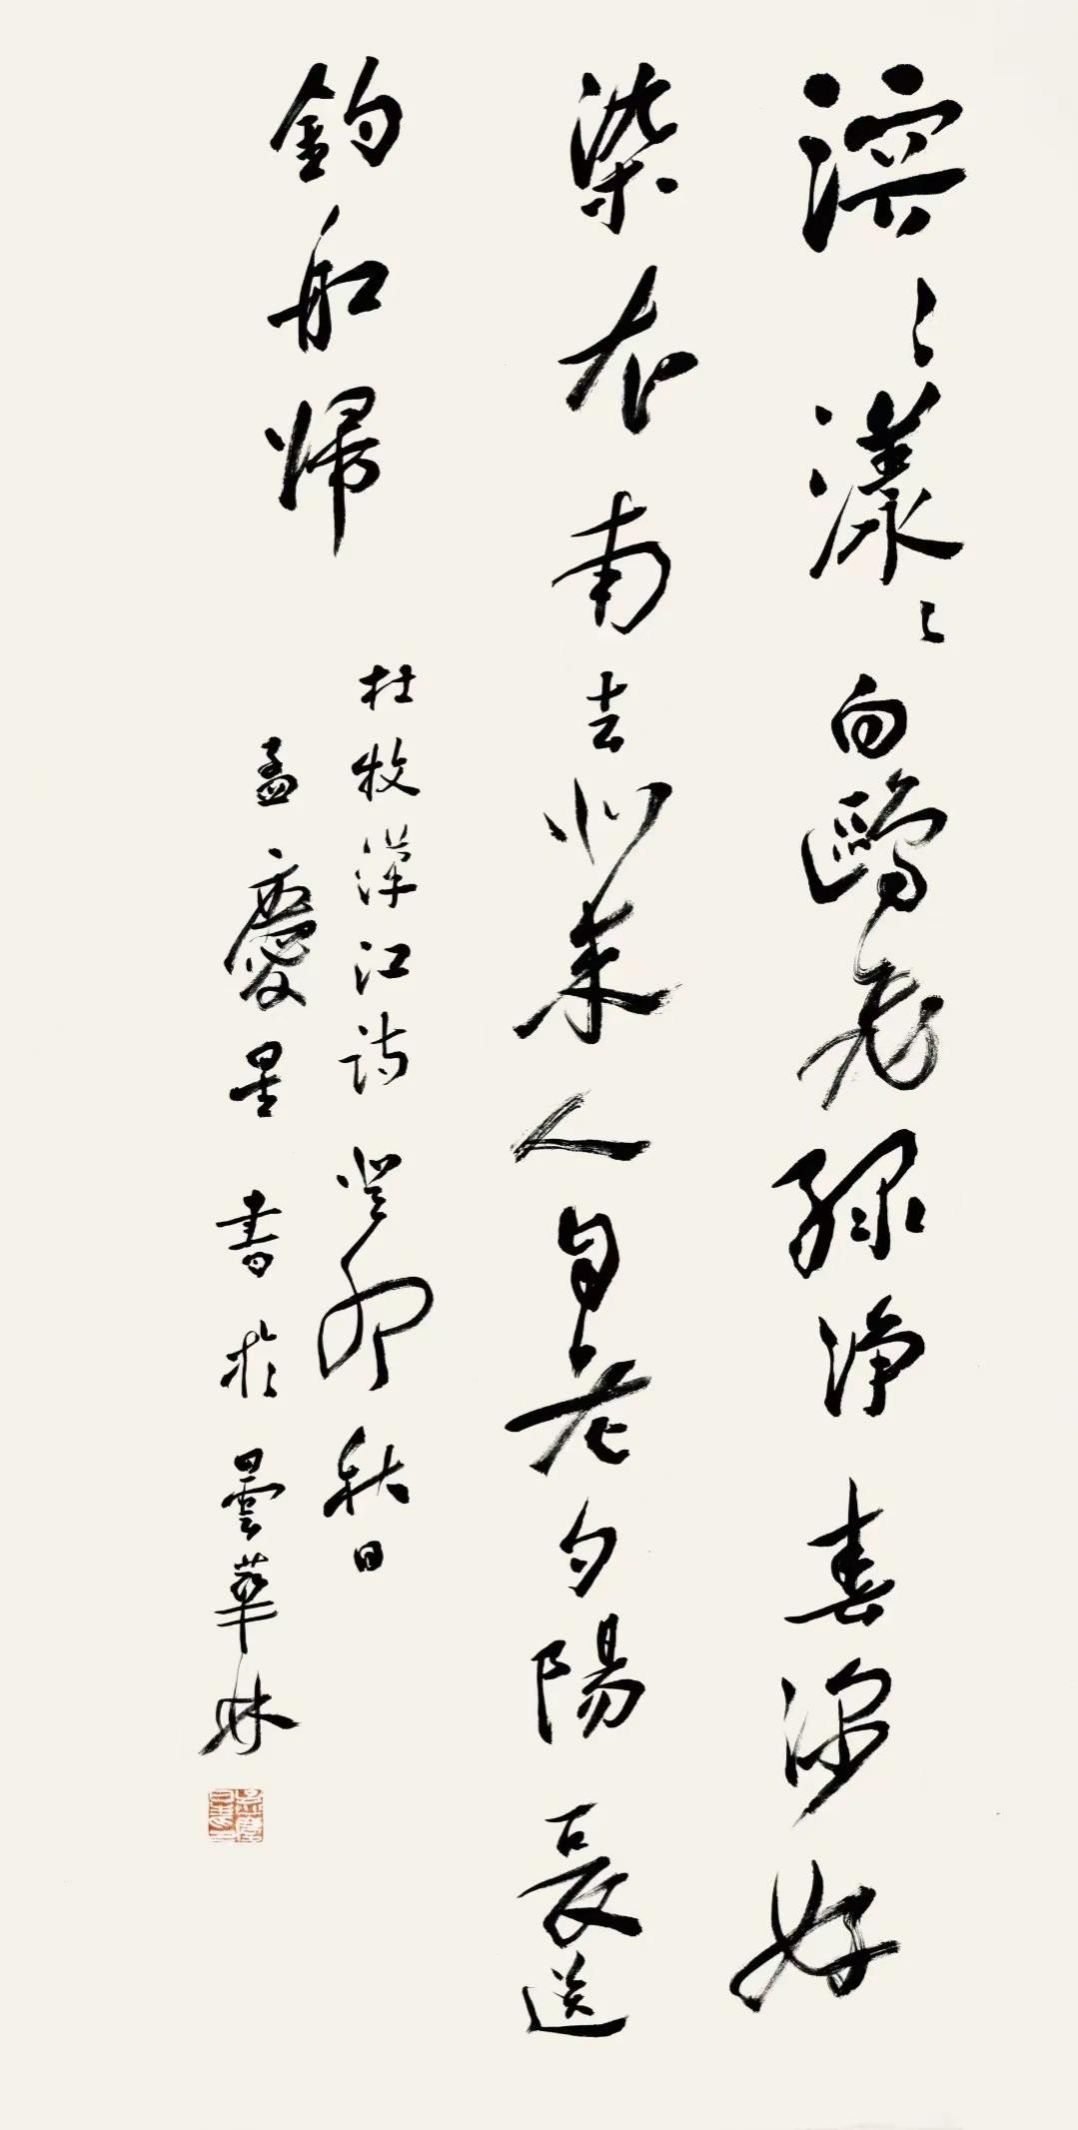 溶々漾々白鷗飛綠淨春深好
染衣南去北來人自老夕陽長送
釣船歸
杜牧漢江詩 癸卯秋日
孟慶星書於曇華林